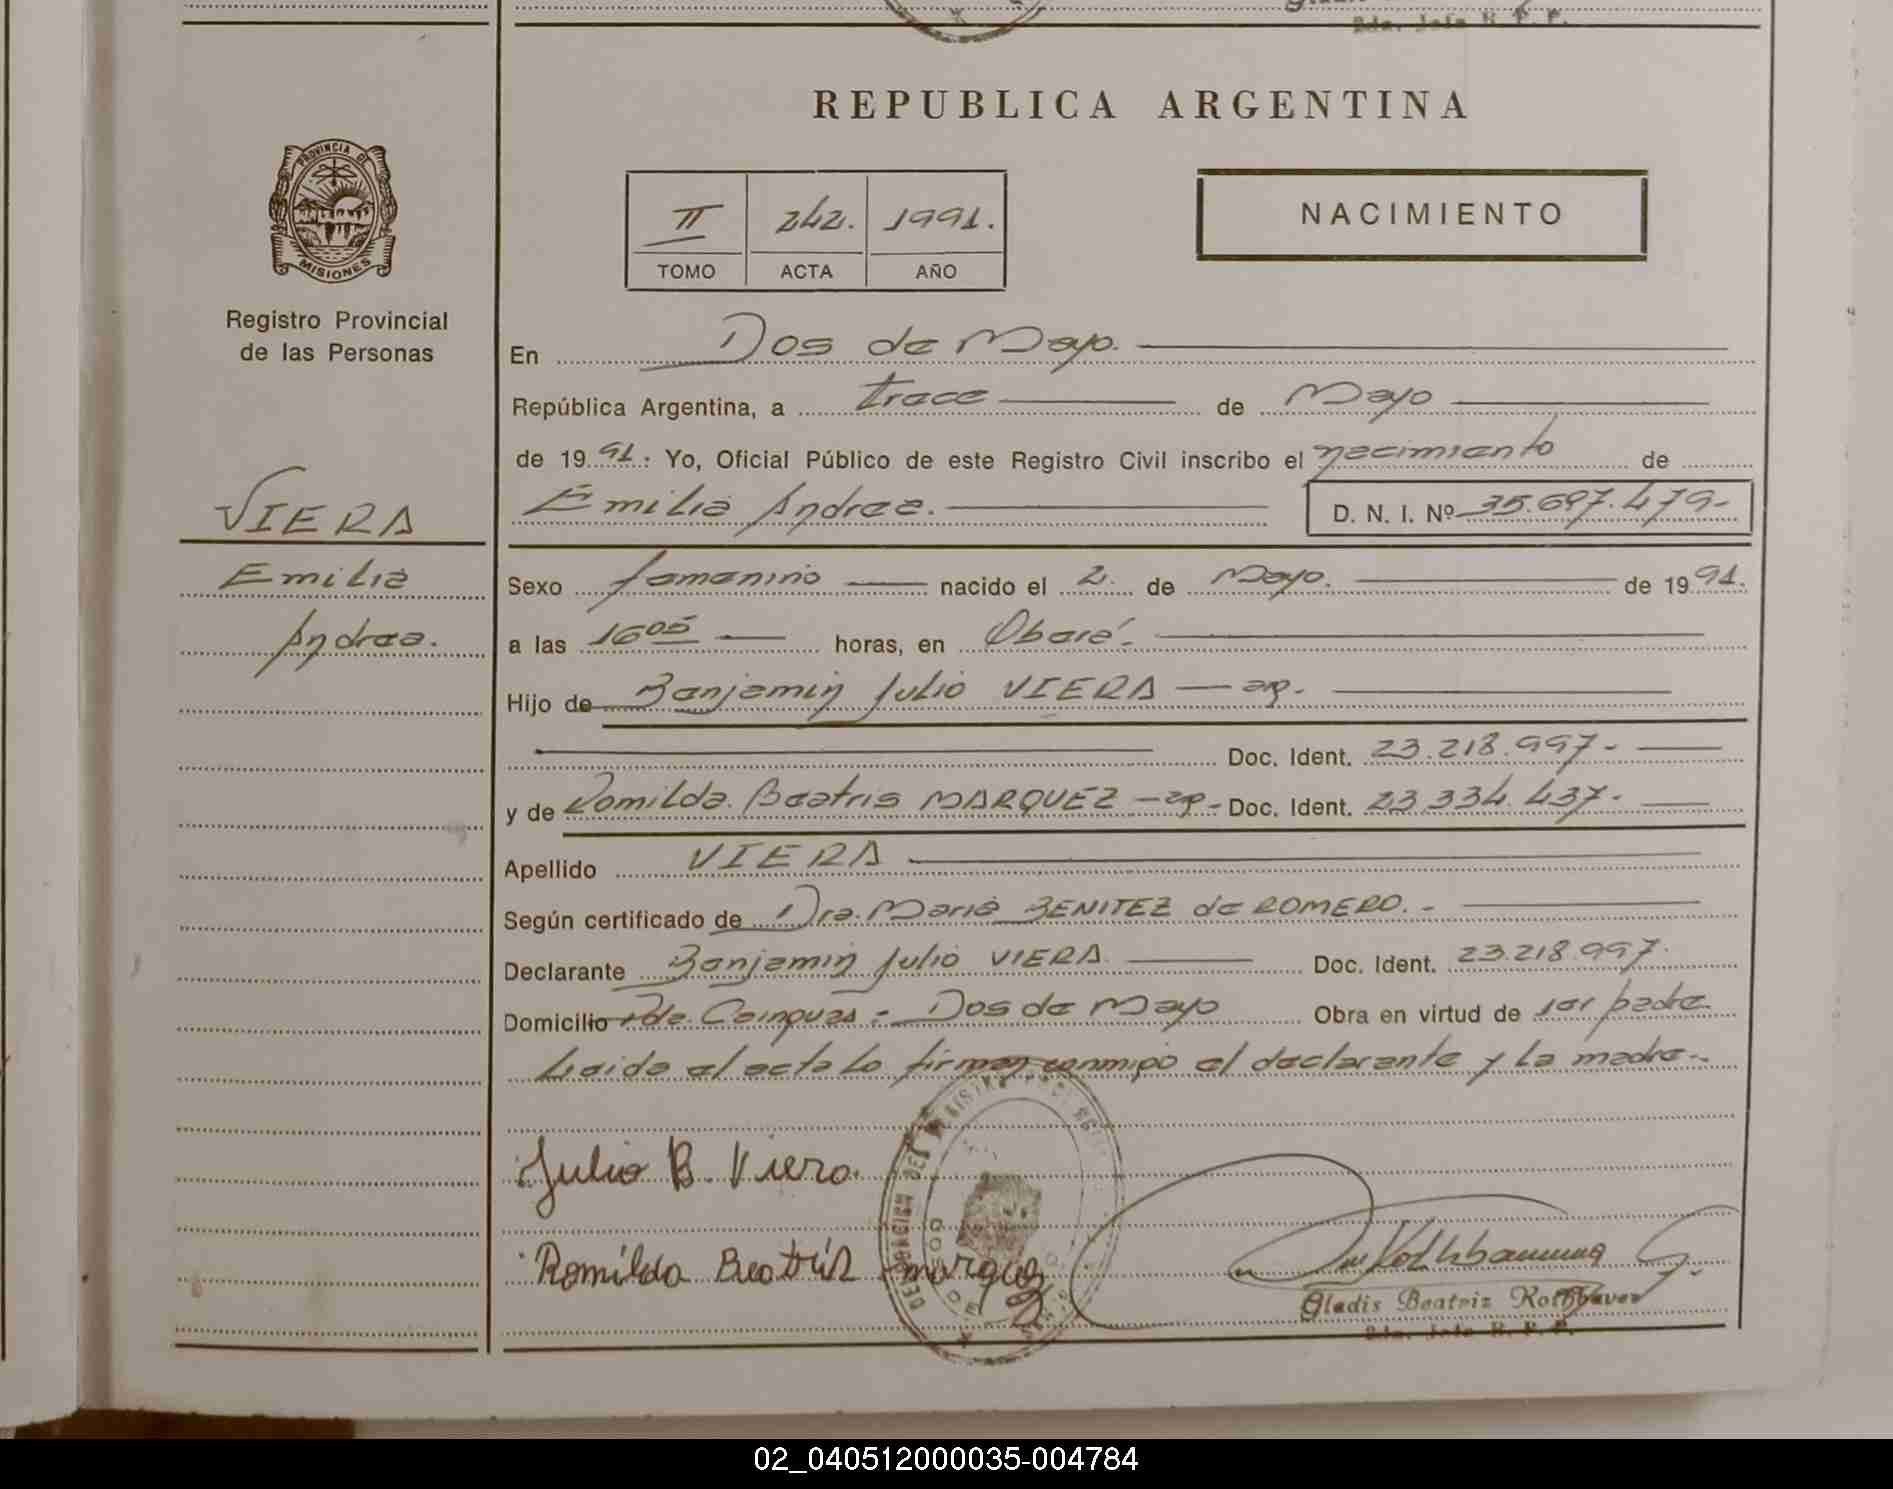 Gladis
2da. Jefe R. P. P.
REPUBLICA ARGENTINA
PROVINCIA DE
MISIONES
Registro Provincial
de las Personas
II 242. 1991.
TOMO ACTA AÑO
NACIMIENTO
En Dos de Mayo.
República Argentina, a trece de Mayo
de 1991. Yo, Oficial Público de este Registro Civil inscribo el nacimiento de
Emilia Andrea. D. N. I. Nº 35.697.479-
VIERA
Emilia
Andrea.
Sexo femenino nacido el 2. de Mayo. de 1991.
a las 16 05 horas, en Oberá.
Hijo de Benjamin Julio VIERA — ar.
Doc. Ident. 23.218.997-
y de Romilda Beatris MARQUEZ — ar- Doc. Ident. 23.334.437-
Apellido VIERA
Según certificado de Dra. Maria BENITEZ de ROMERO. -
Declarante Benjamin Julio VIERA Doc. Ident. 23.218.997.
Domicilio Pde. Cainguas - Dos de Mayo Obra en virtud de ser padre
Leida el acta lo firman conmigo el declarante y la madre-
Julio B. Viera.
Romilda Beatriz marquez
DELEGACION DEL REGISTRO
Gladis Beatriz Rothbauer
2da. Jefe R. P. P.
02_040512000035-004784